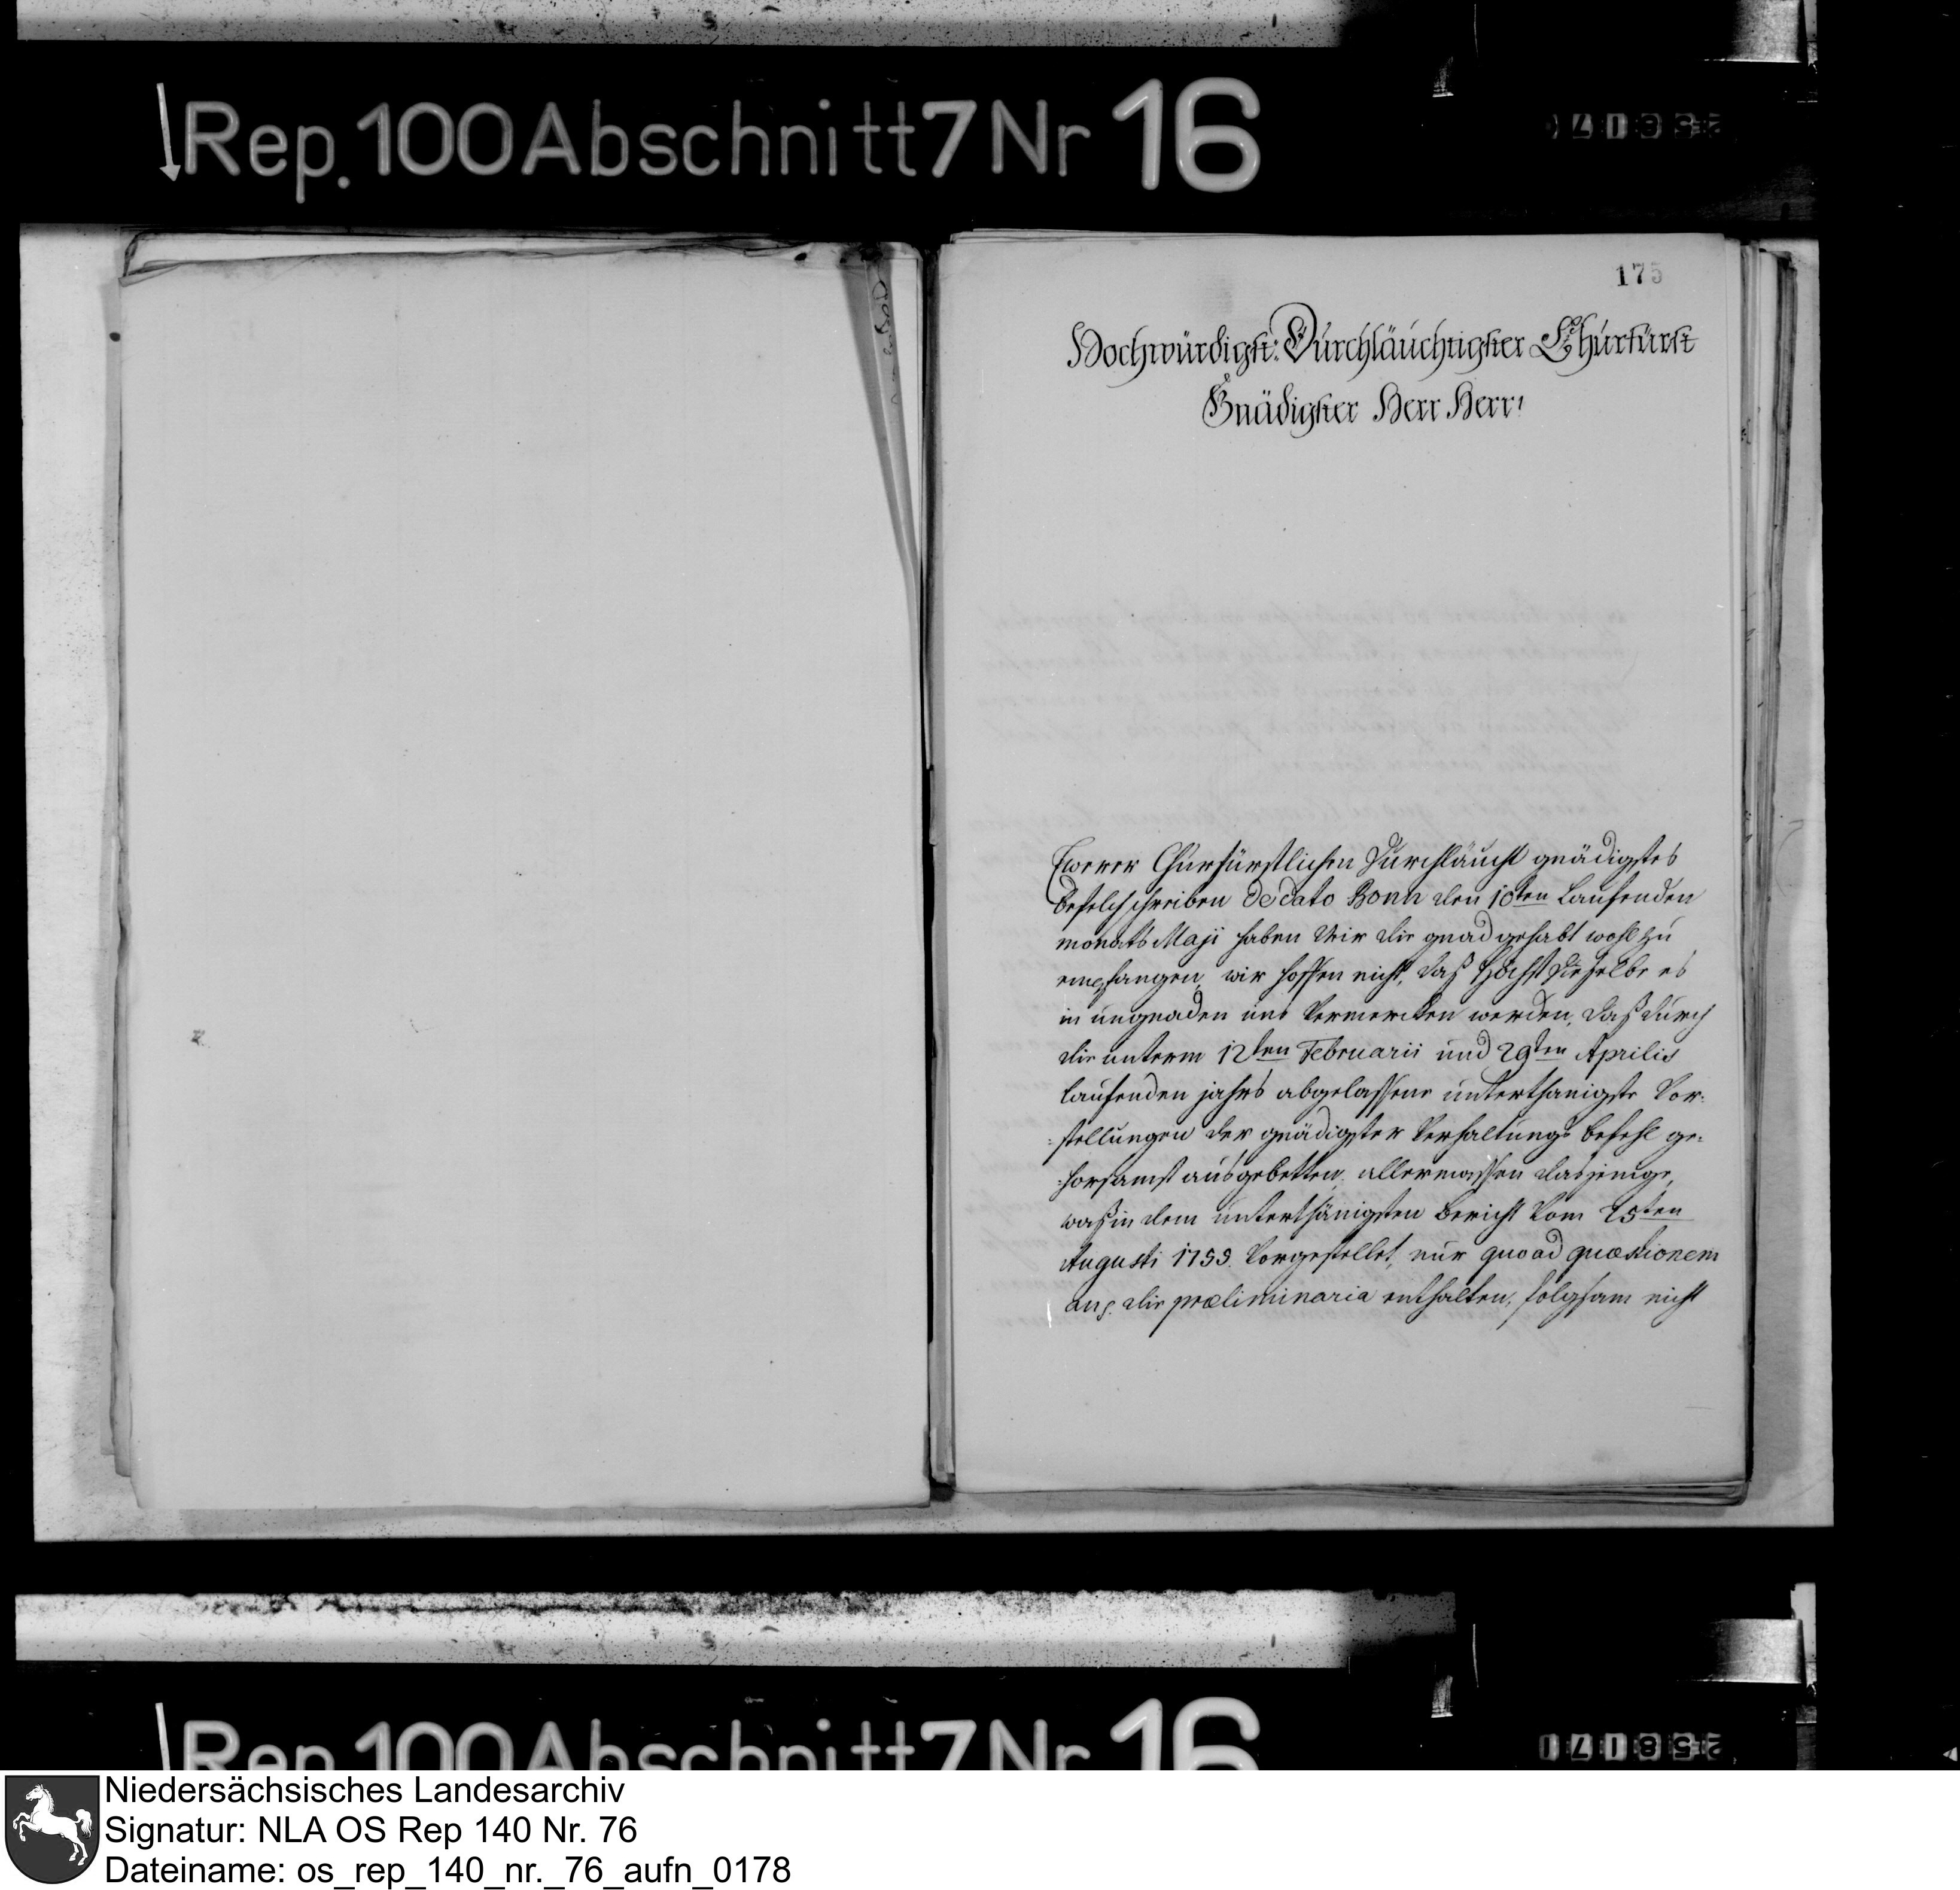 Rep. 100 Abschnitt 7 Nr 16
175
Hochwürdigst: Durchläuchtigster Churfürst
Gnädigster Herr Herr!
Ewerer Churfürstlichen Durchläucht gnädigstes
Befelchschreiben de dato Bonn den 10ten Laufenden
monats Maji haben Wir die gnad gehabt wohl zu
empfangen, wir hoffen nicht, daß Höchst Dieselbe es
in ungnaden uns Vermercken werden, daß durch
die unterm 12ten Februarii und 29ten Aprilis
laufenden jahrs abgelassene unterthänigste Vor-
:stellungen der gnädigster Verhaltungs befehl ge-
:horsamst ausgebetten, allermassen dasjenige,
waß in dem unterthänigsten Bericht Vom 25ten
Augusti 1759. Vorgestellet, nur quoad quæstionem
an, die præliminaria enthalten, folgsam nicht
Rep. 100 Abschnitt 7 Nr 16
Niedersächsisches Landesarchiv
Signatur: NLA OS Rep 140 Nr. 76
Dateiname: os_rep_140_nr._76_aufn_0178